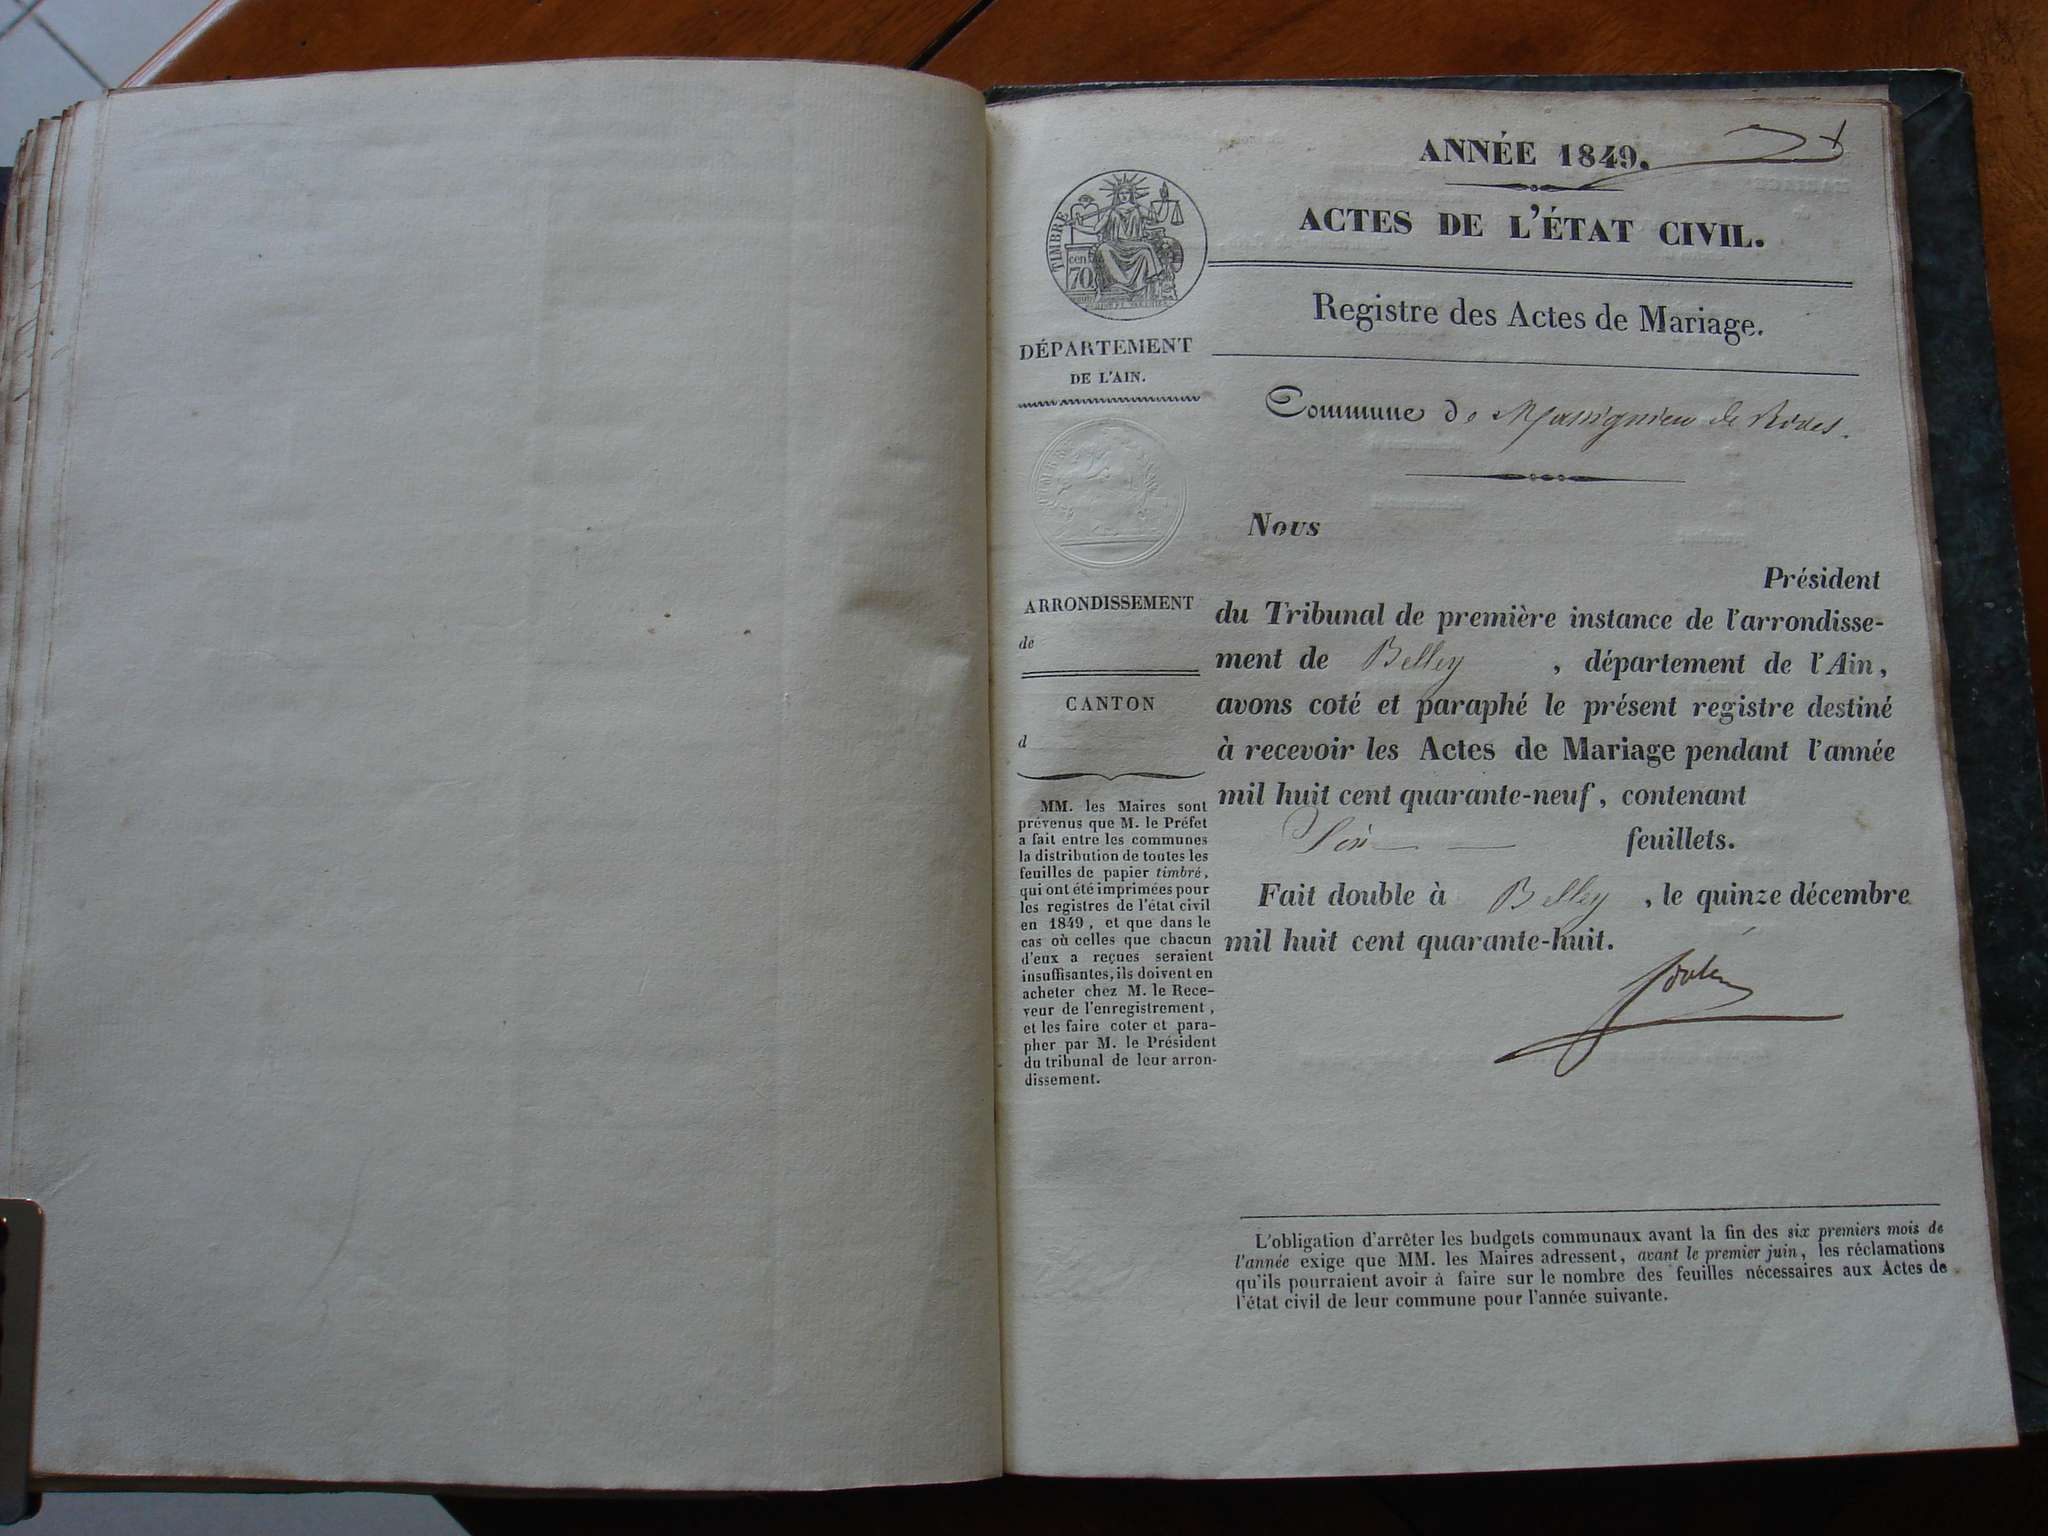 ANNÉE 1849.
ACTES DE L'ÉTAT CIVIL.
Registre des Actes de Mariage.
Commune de Massignieu de Rives.
Nous
Président
du Tribunal de première instance de l'arrondisse-
ment de Belley , département de l'Ain,
avons coté et paraphé le présent registre destiné
à recevoir les Actes de Mariage pendant l'année
mil huit cent quarante-neuf, contenant
feuillets.
Fait double à Belley , le quinze décembre
mil huit cent quarante-huit.
TIMBRE
cen
70
DÉPARTEMENT
DE L'AIN.
ARRONDISSEMENT
de
CANTON
d
MM. les Maires sont
prévenus que M. le Préfet
a fait entre les communes
la distribution de toutes les
feuilles de papier timbré,
qui ont été imprimées pour
les registres de l'état civil
en 1849, et que dans le
cas où celles que chacun
d'eux a reçues seraient
insuffisantes, ils doivent en
acheter chez M. le Rece-
veur de l'enregistrement,
et les faire coter et para-
pher par M. le Président
du tribunal de leur arron-
dissement.
L'obligation d'arrêter les budgets communaux avant la fin des six premiers mois de
l'année exige que MM. les Maires adressent, avant le premier juin, les réclamations
qu'ils pourraient avoir à faire sur le nombre des feuilles nécessaires aux Actes de
l'état civil de leur commune pour l'année suivante.